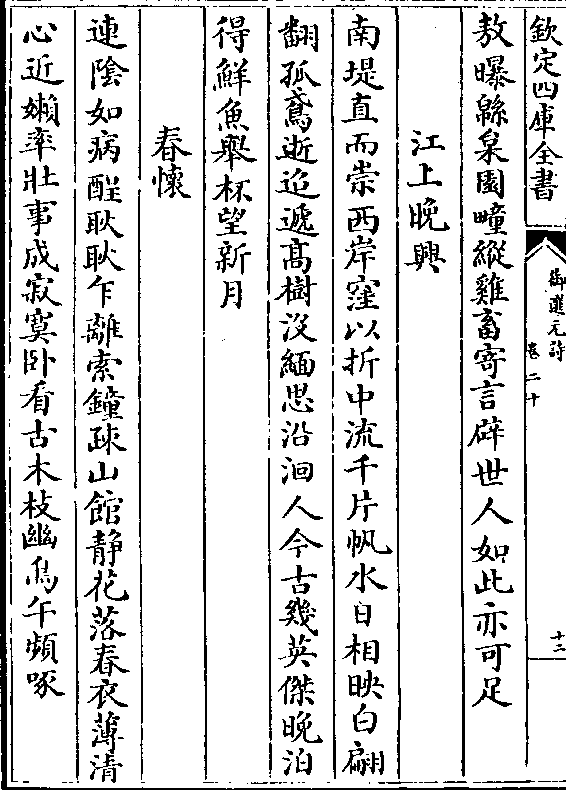 欽定四庫全書
御選元詩
卷二十
十三
敖曝緜臬園疃縱雞畜寄言辟世人如此亦可足
江上晚興
南堤直而崇西岸窪以折中流千片帆水日相映白翩
翻孤鳶逝迢遞髙樹沒緬思沿洄人今古幾英傑晚泊
得鮮魚舉杯望新月
春懷
連陰如病酲耿耿乍離索鐘疎山館靜花落春衣薄清
心近嬾率壯事成寂寞卧看古木枝幽鳥午頻啄